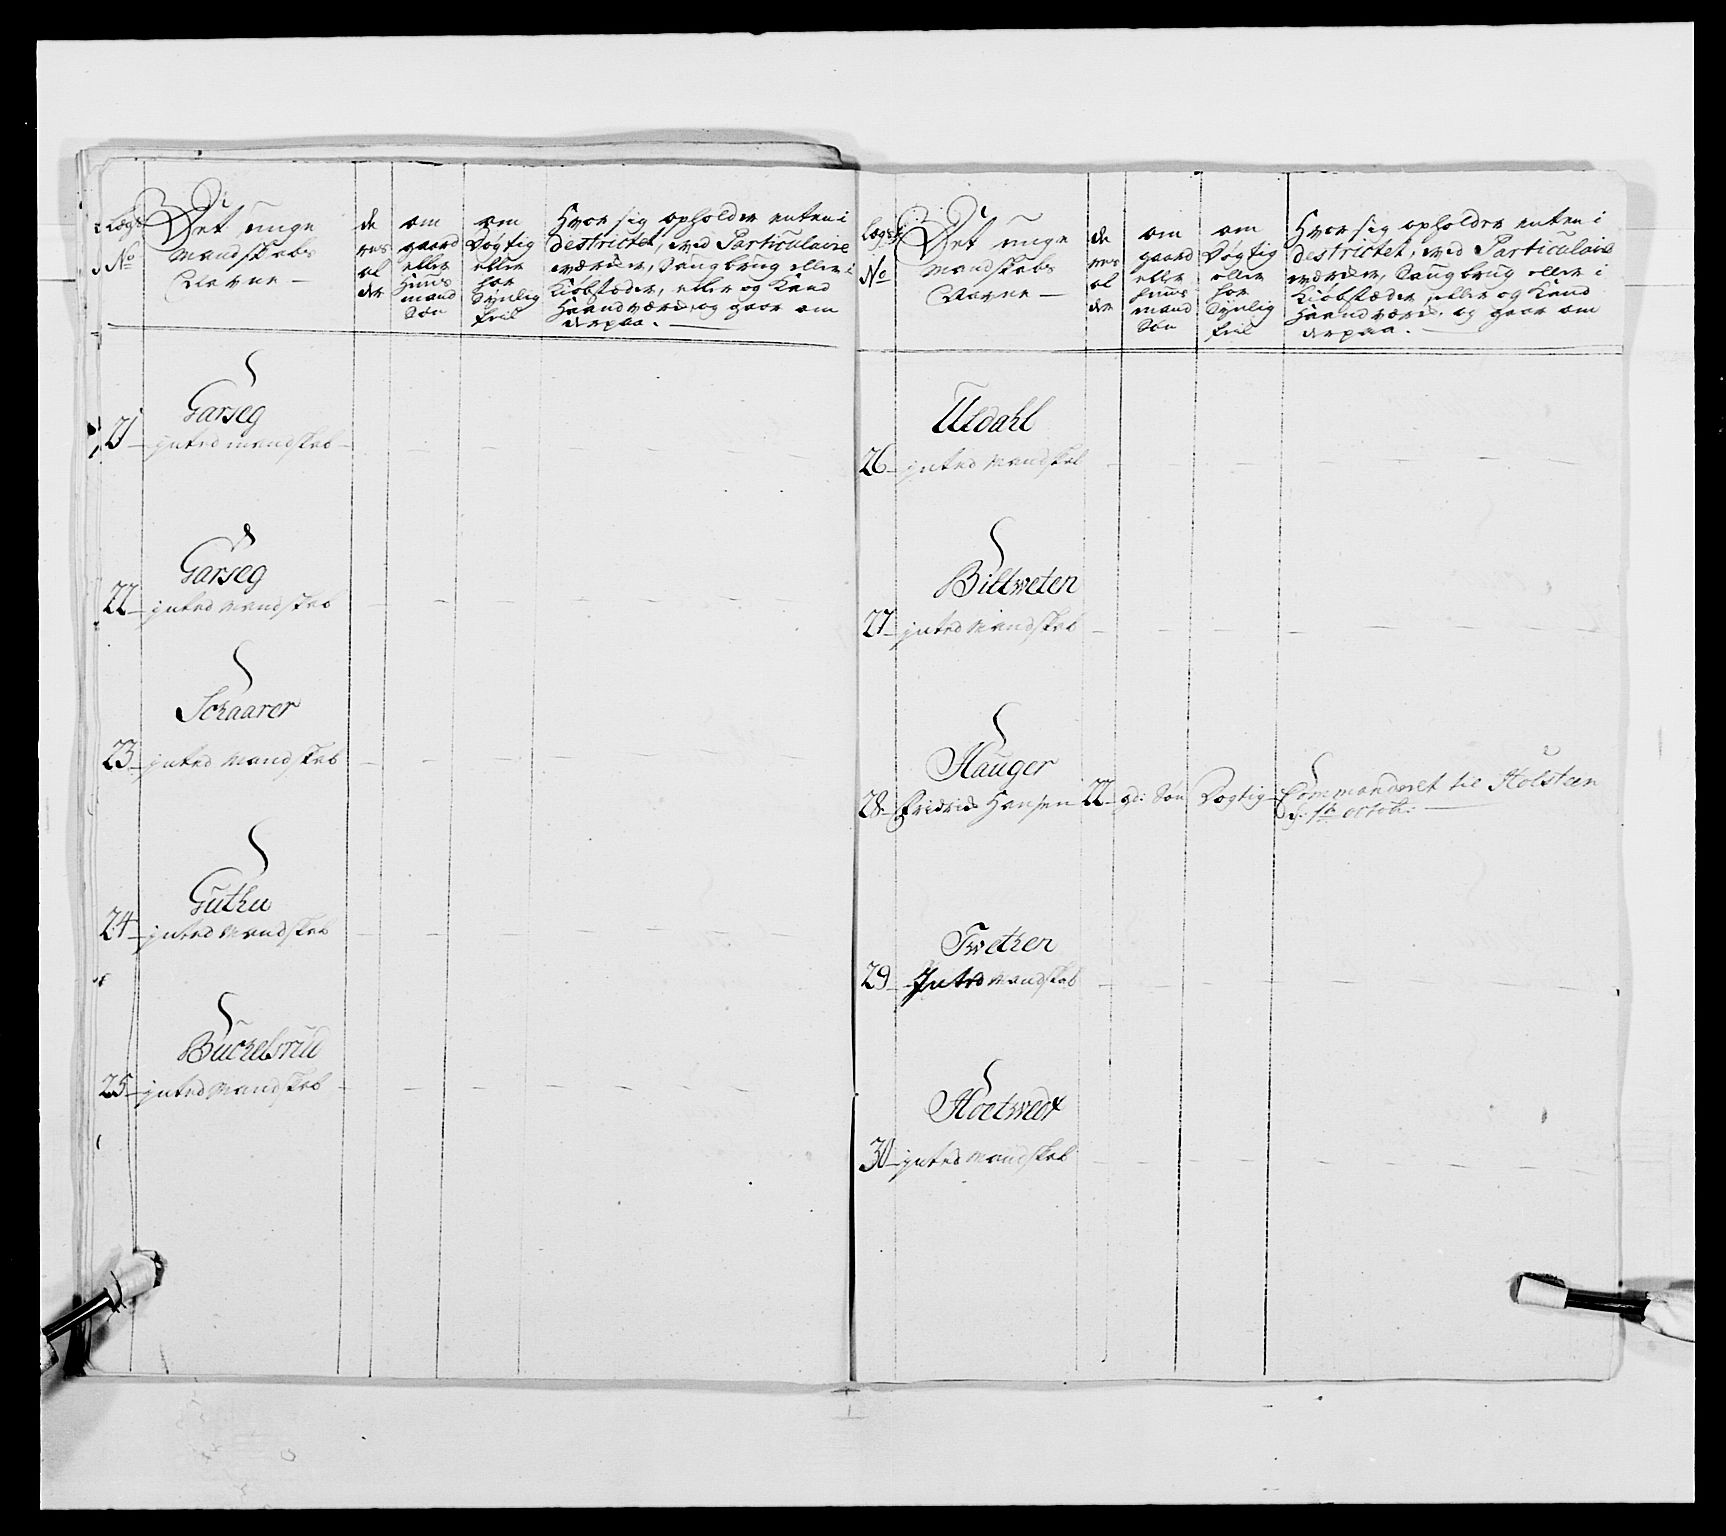 Lægs
No
Det unge
Mandskabs
Navne —
de
res
al
der
om
gaard
eller
huus
mand
Søn
om
Døgtig
eller
for
Synlig
feil
Hvor sig opholder enten i
destrictet, ved Particulaire
værcker, Saugbrug eller i
Kiøbstæder, eller og Kand
Haandværck, og gaar om
derpaa. —
Garseg
21 – inted mandskab –
Garseg
22 – inted Mandskab
Schaarer
23 – inted Mandskab
Guthu
24 – inted Mandskab
Buchelsrud
25 – inted Mandskab
Lægs
No
Det unge
Mandskabs
Navne —
de
res
al
der
om
gaard
eller
huus
mand
Søn
om
Døgtig
eller
for
Synlig
feil
Hvor sig opholder enten i
destrictet, ved Particulaire
værcker, Saugbrug eller i
Kiøbstæder, eller og Kand
Haandværck, og gaar om
derpaa. —
Uldahl
26 – inted Mandskab
Biltweten
27 – inted Mandskab
Hauger
28 – Fridrich Hansen 22 – gd: Søn Døgtig – Commanderet til Holsteen
d: 1te octob: —
Twethen
29 – Inted Mandskab
Hoetwedt
30 – inted Mandskab